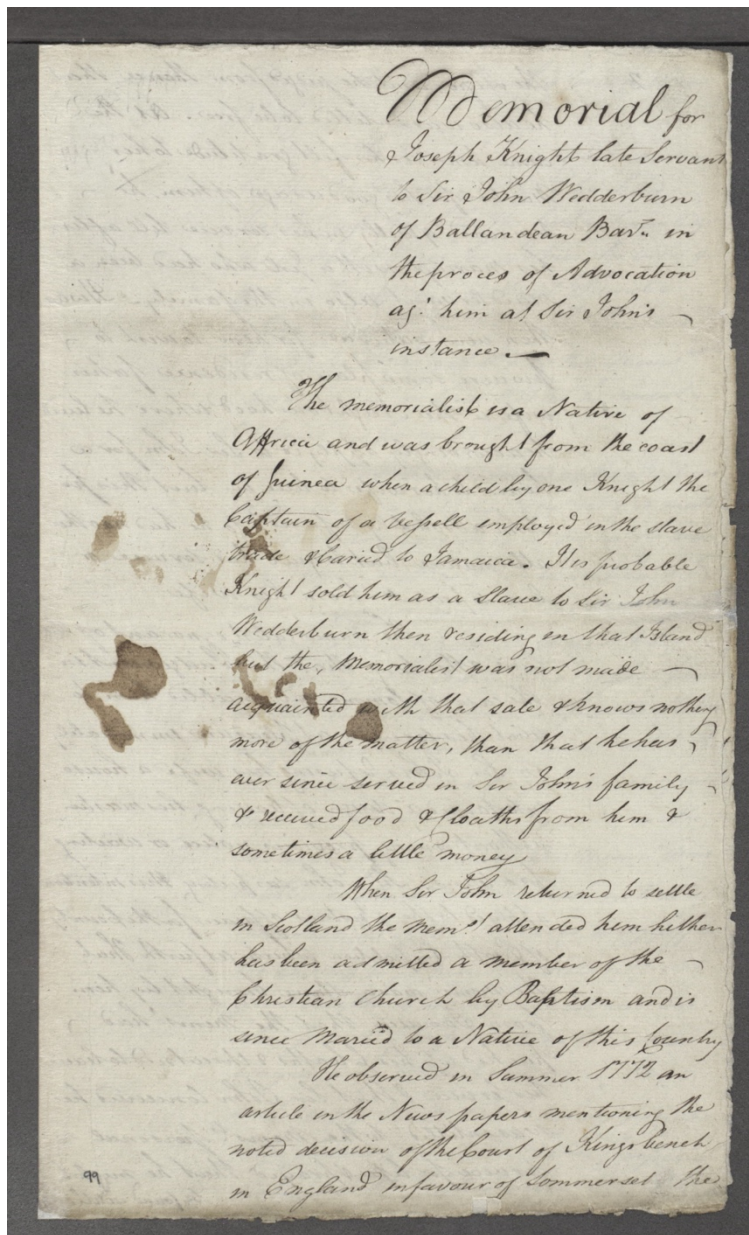 Memorial for
Joseph Knight late Servant
to Sir John Wedderburn
of Ballandean Barᵗ in
the proces of Advocation
agᵗ him at Sir John's
instance.
The memorialist is a Native of
Affrica and was brought from the coast
of Guinea when a child by one Knight the
Captain of a vessell employed in the slave
trade & Caried to Jamaica. It is probable
Knight sold him as a Slave to Sir John
Wedderburn then residing in that Island
but the Memorialist was not made
acquainted with that sale & knows nothing
more of the matter, than that he has
ever since served in Sir John's family
& received food & Cloaths from him &
sometimes a little money
When Sir John returned to settle
in Scotland the Memˡ attended him hither
has been admitted a member of the
Christian Church by Baptism and is
since Maried to a Native of this Country
He observed in Summer 1772 an
article in the News papers mentioning the
noted decision of the Court of Kings bench
in England in favour of Sommerset the
99